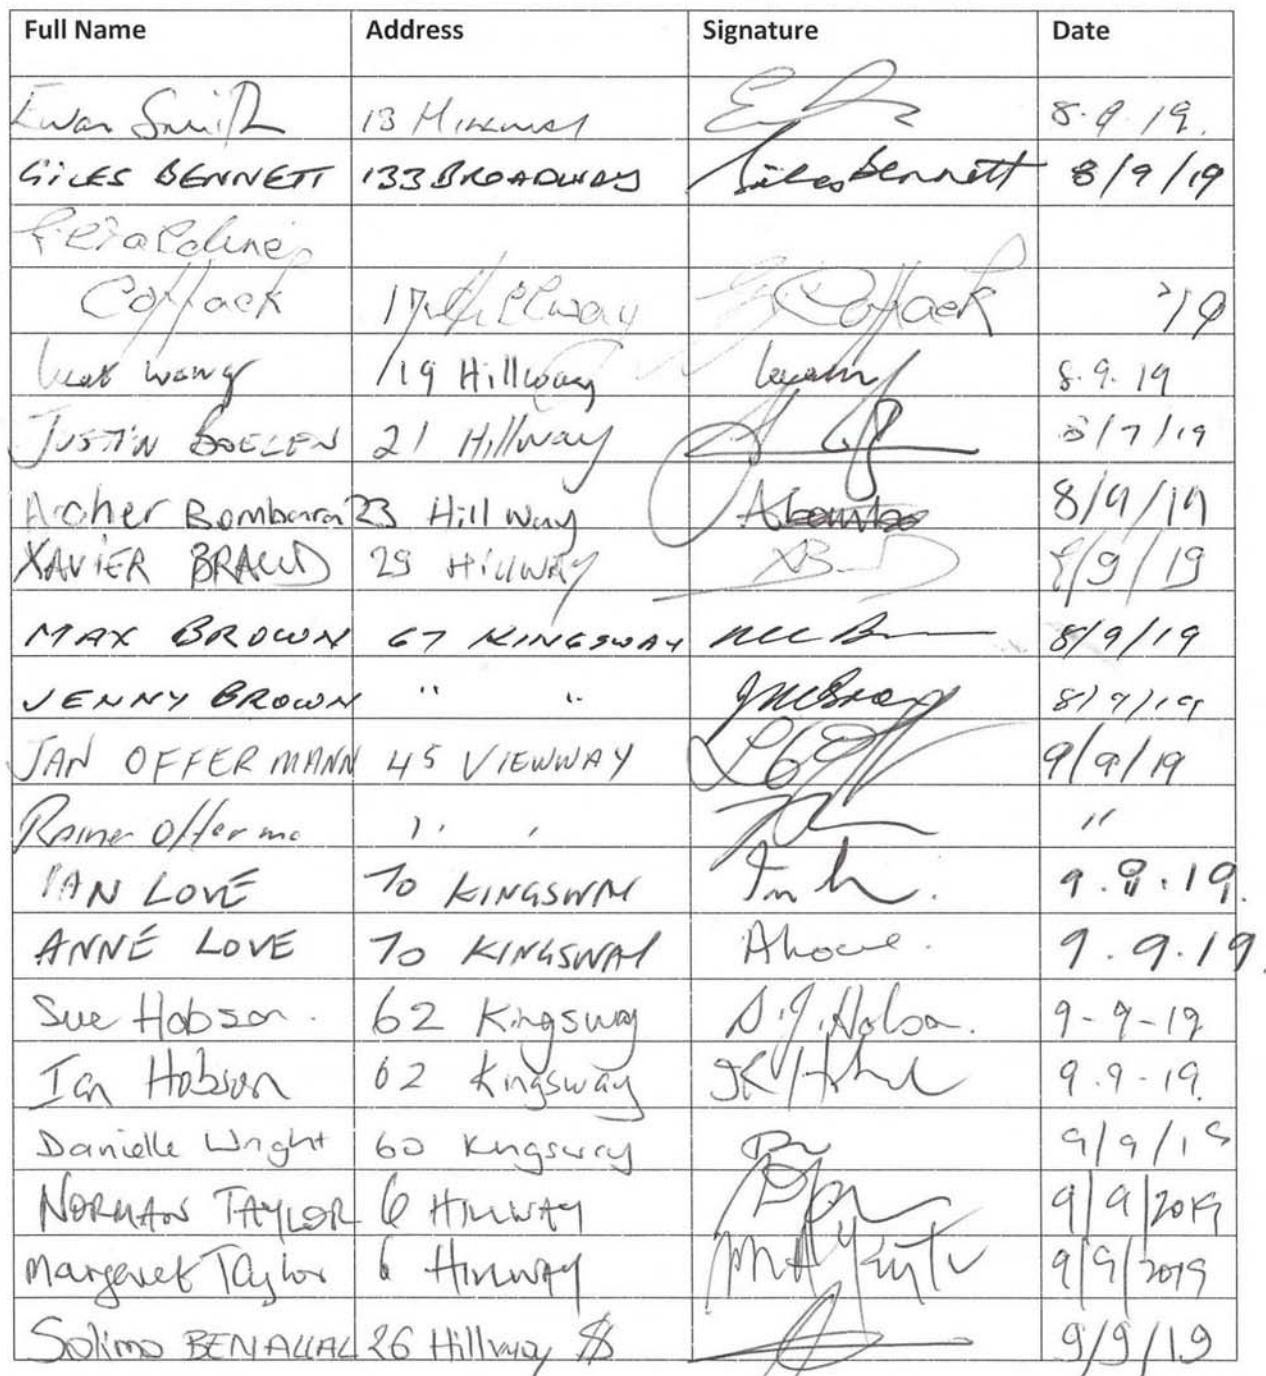 Full Name Address Signature Date
Ewan Smith 13 Hillway 8.9.19.
GILES BENNETT 133 BROADWAY Giles Bennett 8/9/19
Geraldine
Cossack 17 Hillway G Cossack
Wong 19 Hillway 8.9.19
JUSTIN BOELEN 21 Hillway 8/7/19
Archer Bombara 23 Hillway 8/9/19
XAVIER BRAUD 29 HILLWAY XB 8/9/19
MAX BROWN 67 KINGSWAY 8/9/19
JENNY BROWN " " 8/9/19
JAN OFFERMANN 45 VIEWWAY 9/9/19
Rainer Offerma "
IAN LOVE 70 KINGSWAY 9.9.19.
ANNE LOVE 70 KINGSWAY ALove. 9.9.19.
Sue Hobson. 62 Kingsway S.J.Hobson. 9-9-19
Ian Hobson 62 Kingsway 9.9-19.
Danielle Wright 60 Kingsway 9/9/19
NORMAN TAYLOR 6 HILLWAY 9/9/2019
Margaret Taylor 6 HILLWAY 9/9/2019
Solimo BENALLAL 26 Hillway 9/9/19